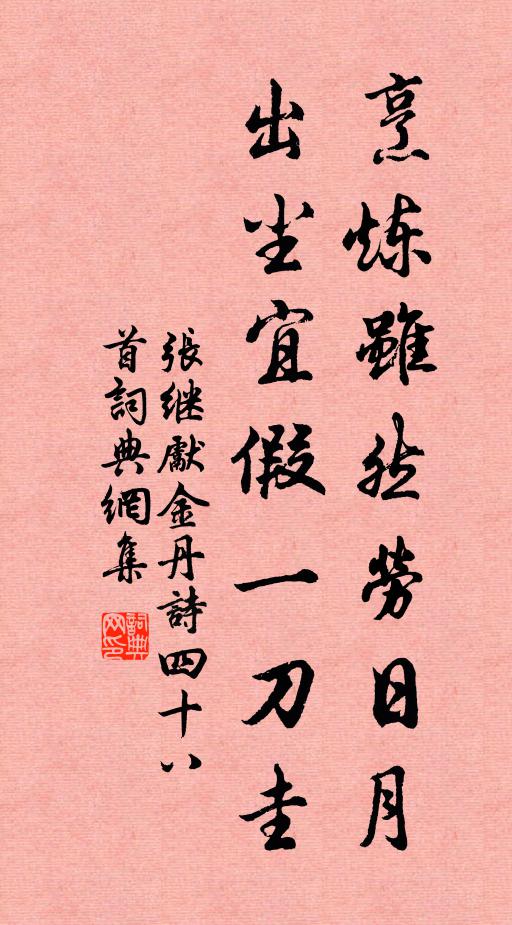 烹炼雖然勞日月
出尘宜假一刀圭
張继獻金丹詩四十八
首詞典網集
詞典
网印